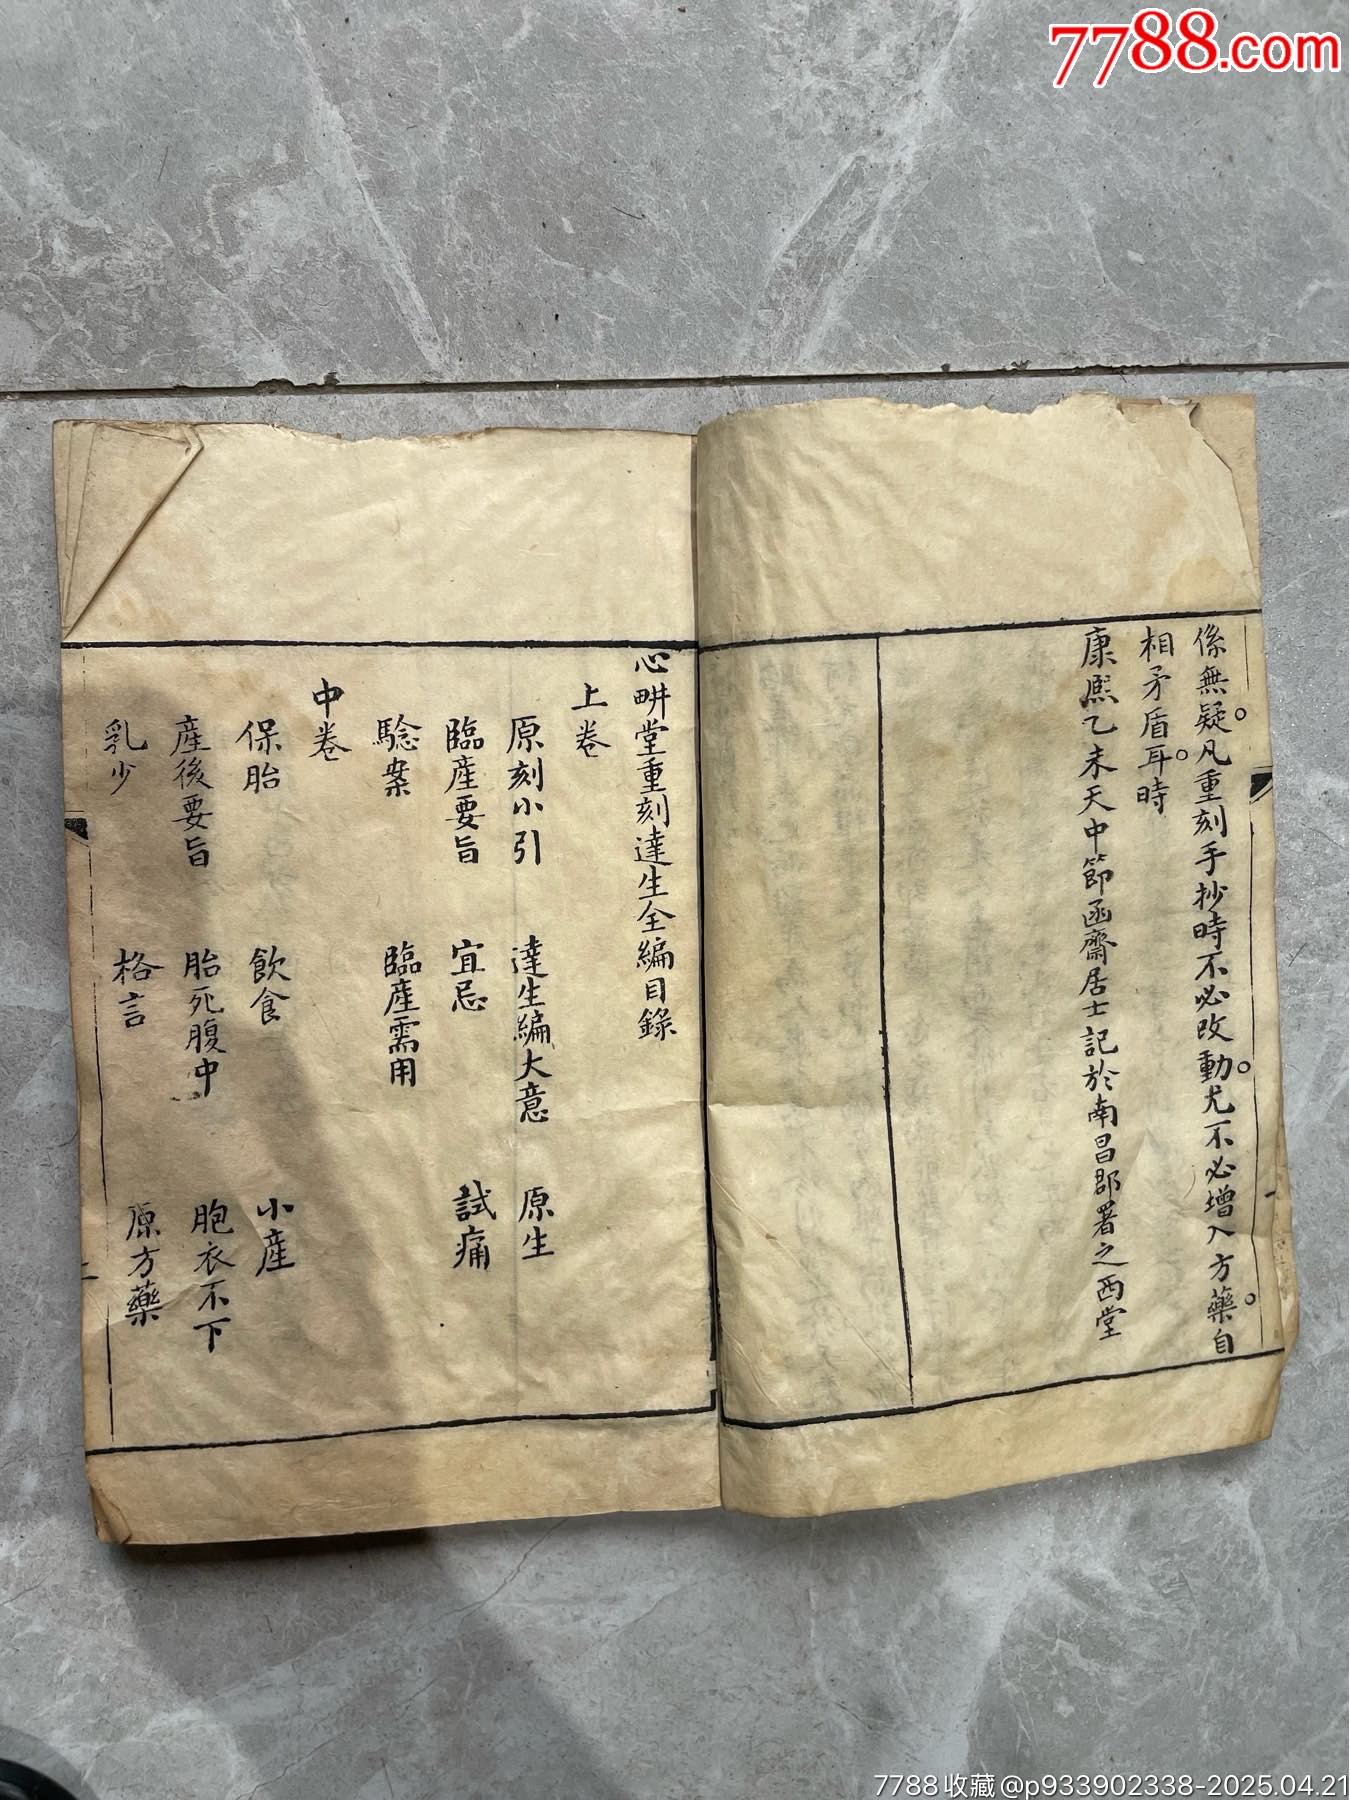 7788.com
係無疑。凡重刻手抄時不必改動。尤不必增入方藥。自
相矛盾耳。時
康熙乙未天中節函齋居士記於南昌郡署之西堂
心畊堂重刻達生全編目錄
上卷
原刻小引 達生編大意 原生
臨產要旨 宜忌 試痛
騐案 臨產需用
中卷
保胎 飲食 小產
產後要旨 胎死腹中 胞衣不下
乳少 格言 原方藥
二
7788收藏@p933902338-2025.04.21